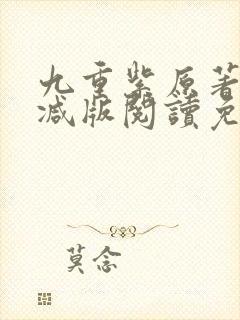 九重紫原著
减版閱讀免
莫念